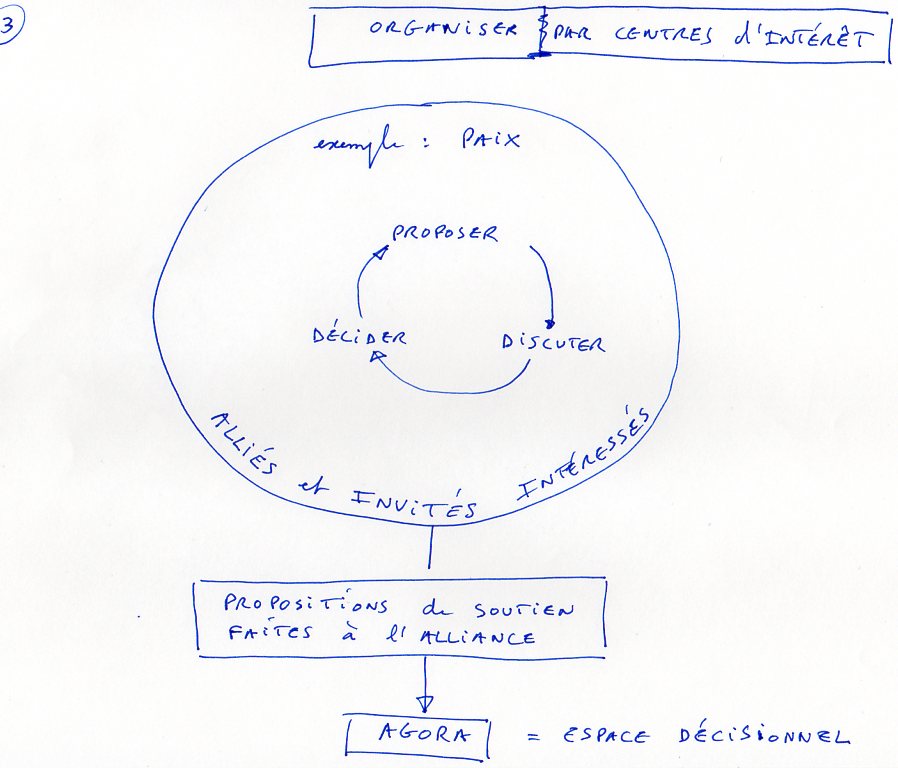 3
ORGANISER PAR CENTRES d'INTÉRÊT
exemple : PAIX
PROPOSER
DÉCIDER
DISCUTER
ALLIÉS et INVITÉS INTÉRESSÉS
PROPOSITIONS de SOUTIEN
FAITES à l'ALLIANCE
AGORA = ESPACE DÉCISIONNEL